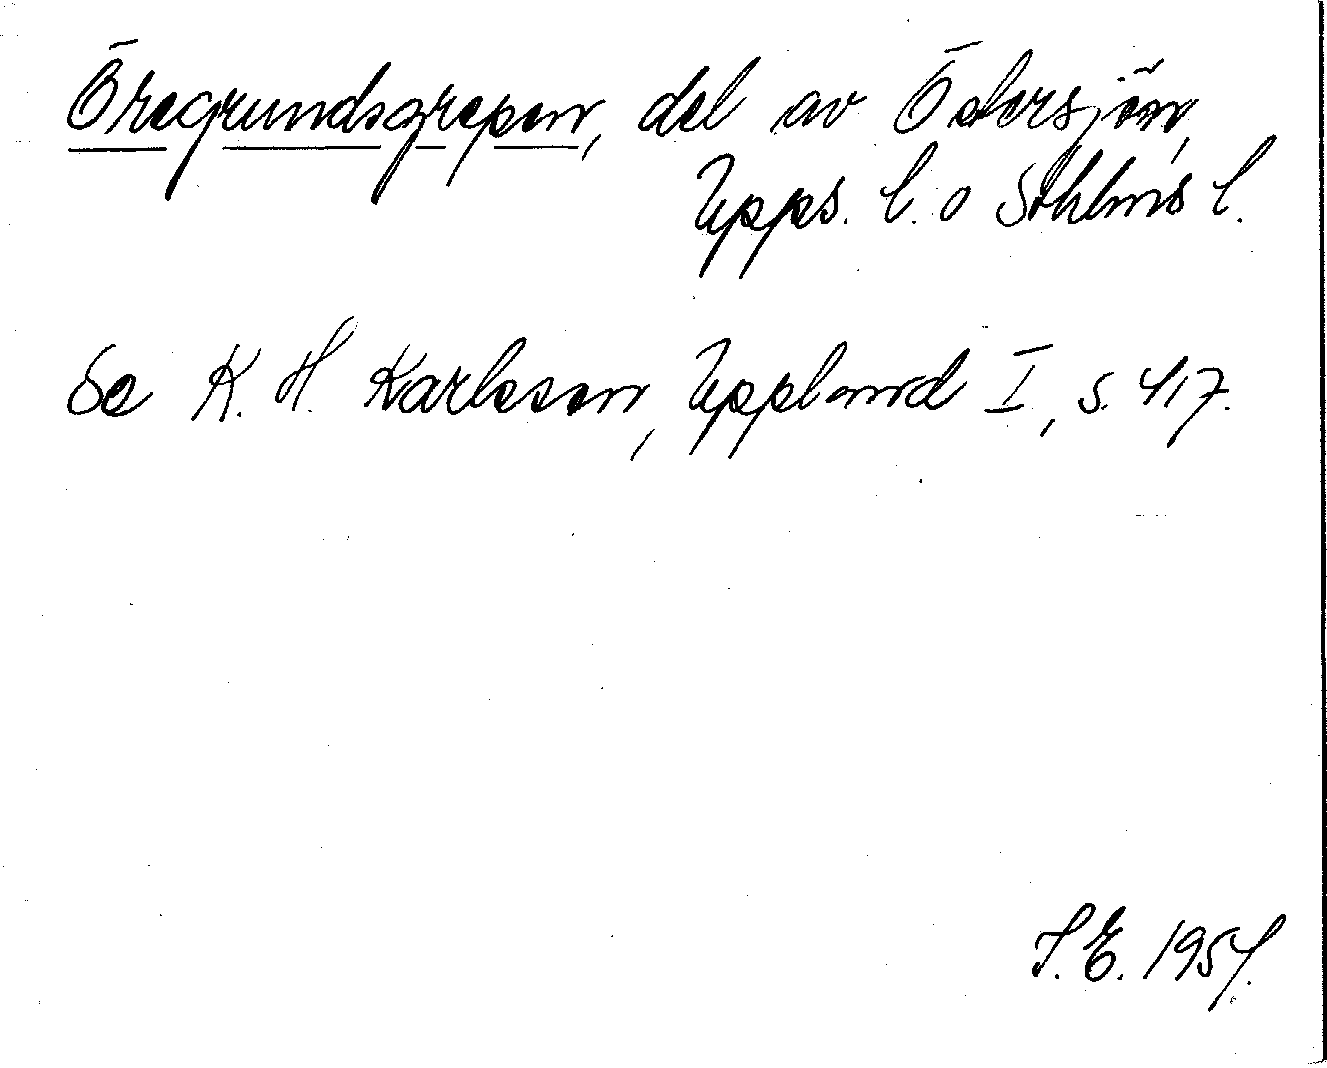 Öregrundsgrepen, del av Östersjön,
Upps. l. o Sthlms l.
Se K. H. Karlsson, Uppland I, s. 417.
S. E. 1954.